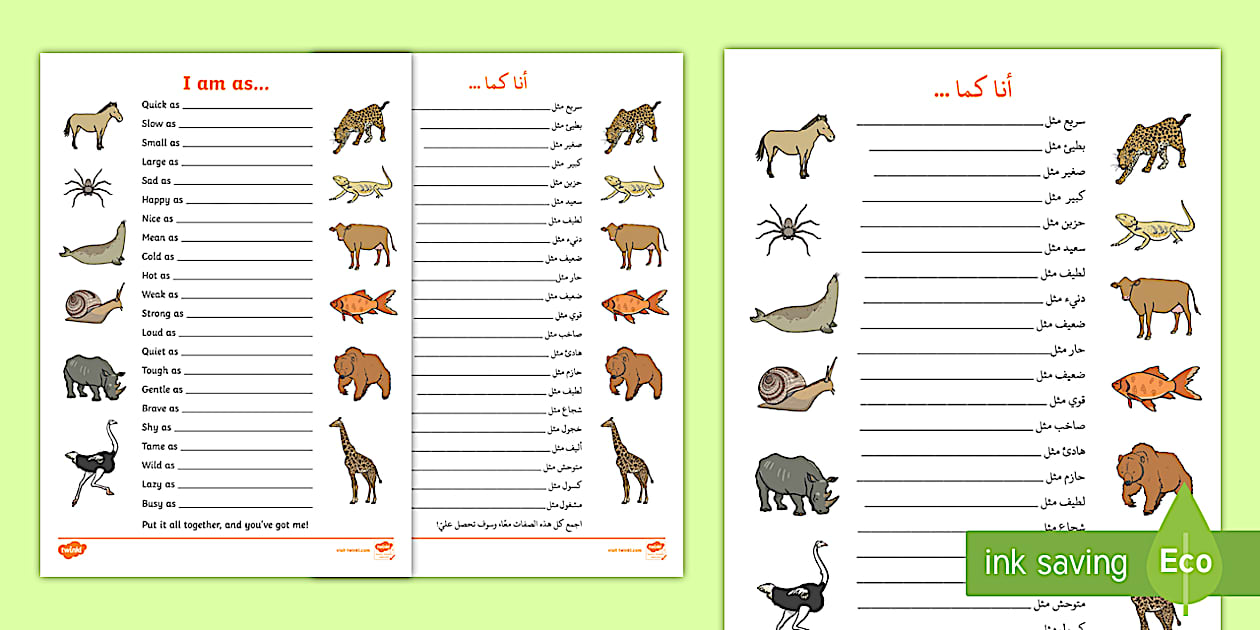 I am as...
Quick as
Slow as
Small as
Large as
Sad as
Happy as
Nice as
Mean as
Cold as
Hot as
Weak as
Strong as
Loud as
Quiet as
Tough as
Gentle as
Brave as
Shy as
Tame as
Wild as
Lazy as
Busy as
Put it all together, and you've got me!
twinkl
visit twinkl.com
twinkl
أنا كما ...
سريع مثل
بطيئ مثل
صغير مثل
كبير مثل
حزين مثل
سعيد مثل
لطيف مثل
دنيء مثل
ضعيف مثل
حار مثل
ضعيف مثل
قوي مثل
صاخب مثل
هادئ مثل
حازم مثل
لطيف مثل
شجاع مثل
خجول مثل
أليف مثل
متوحش مثل
كسول مثل
مشغول مثل
اجمع كل هذه الصفات معًاه وسوف تحصل عليّ!
visit twinkl.com
twinkl
أنا كما ...
سريع مثل
بطيئ مثل
صغير مثل
كبير مثل
حزين مثل
سعيد مثل
لطيف مثل
دنيء مثل
ضعيف مثل
حار مثل
ضعيف مثل
قوي مثل
صاخب مثل
هادئ مثل
حازم مثل
لطيف مثل
شجاع مثل
متوحش مثل
كسول مثل
ink saving
Eco